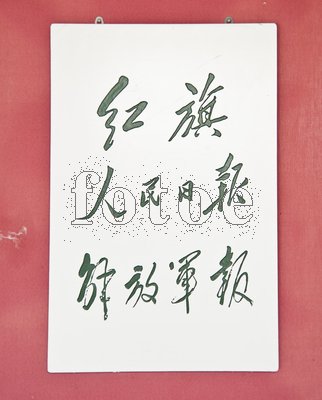 红旗
人民日報
fotoe
解放軍報